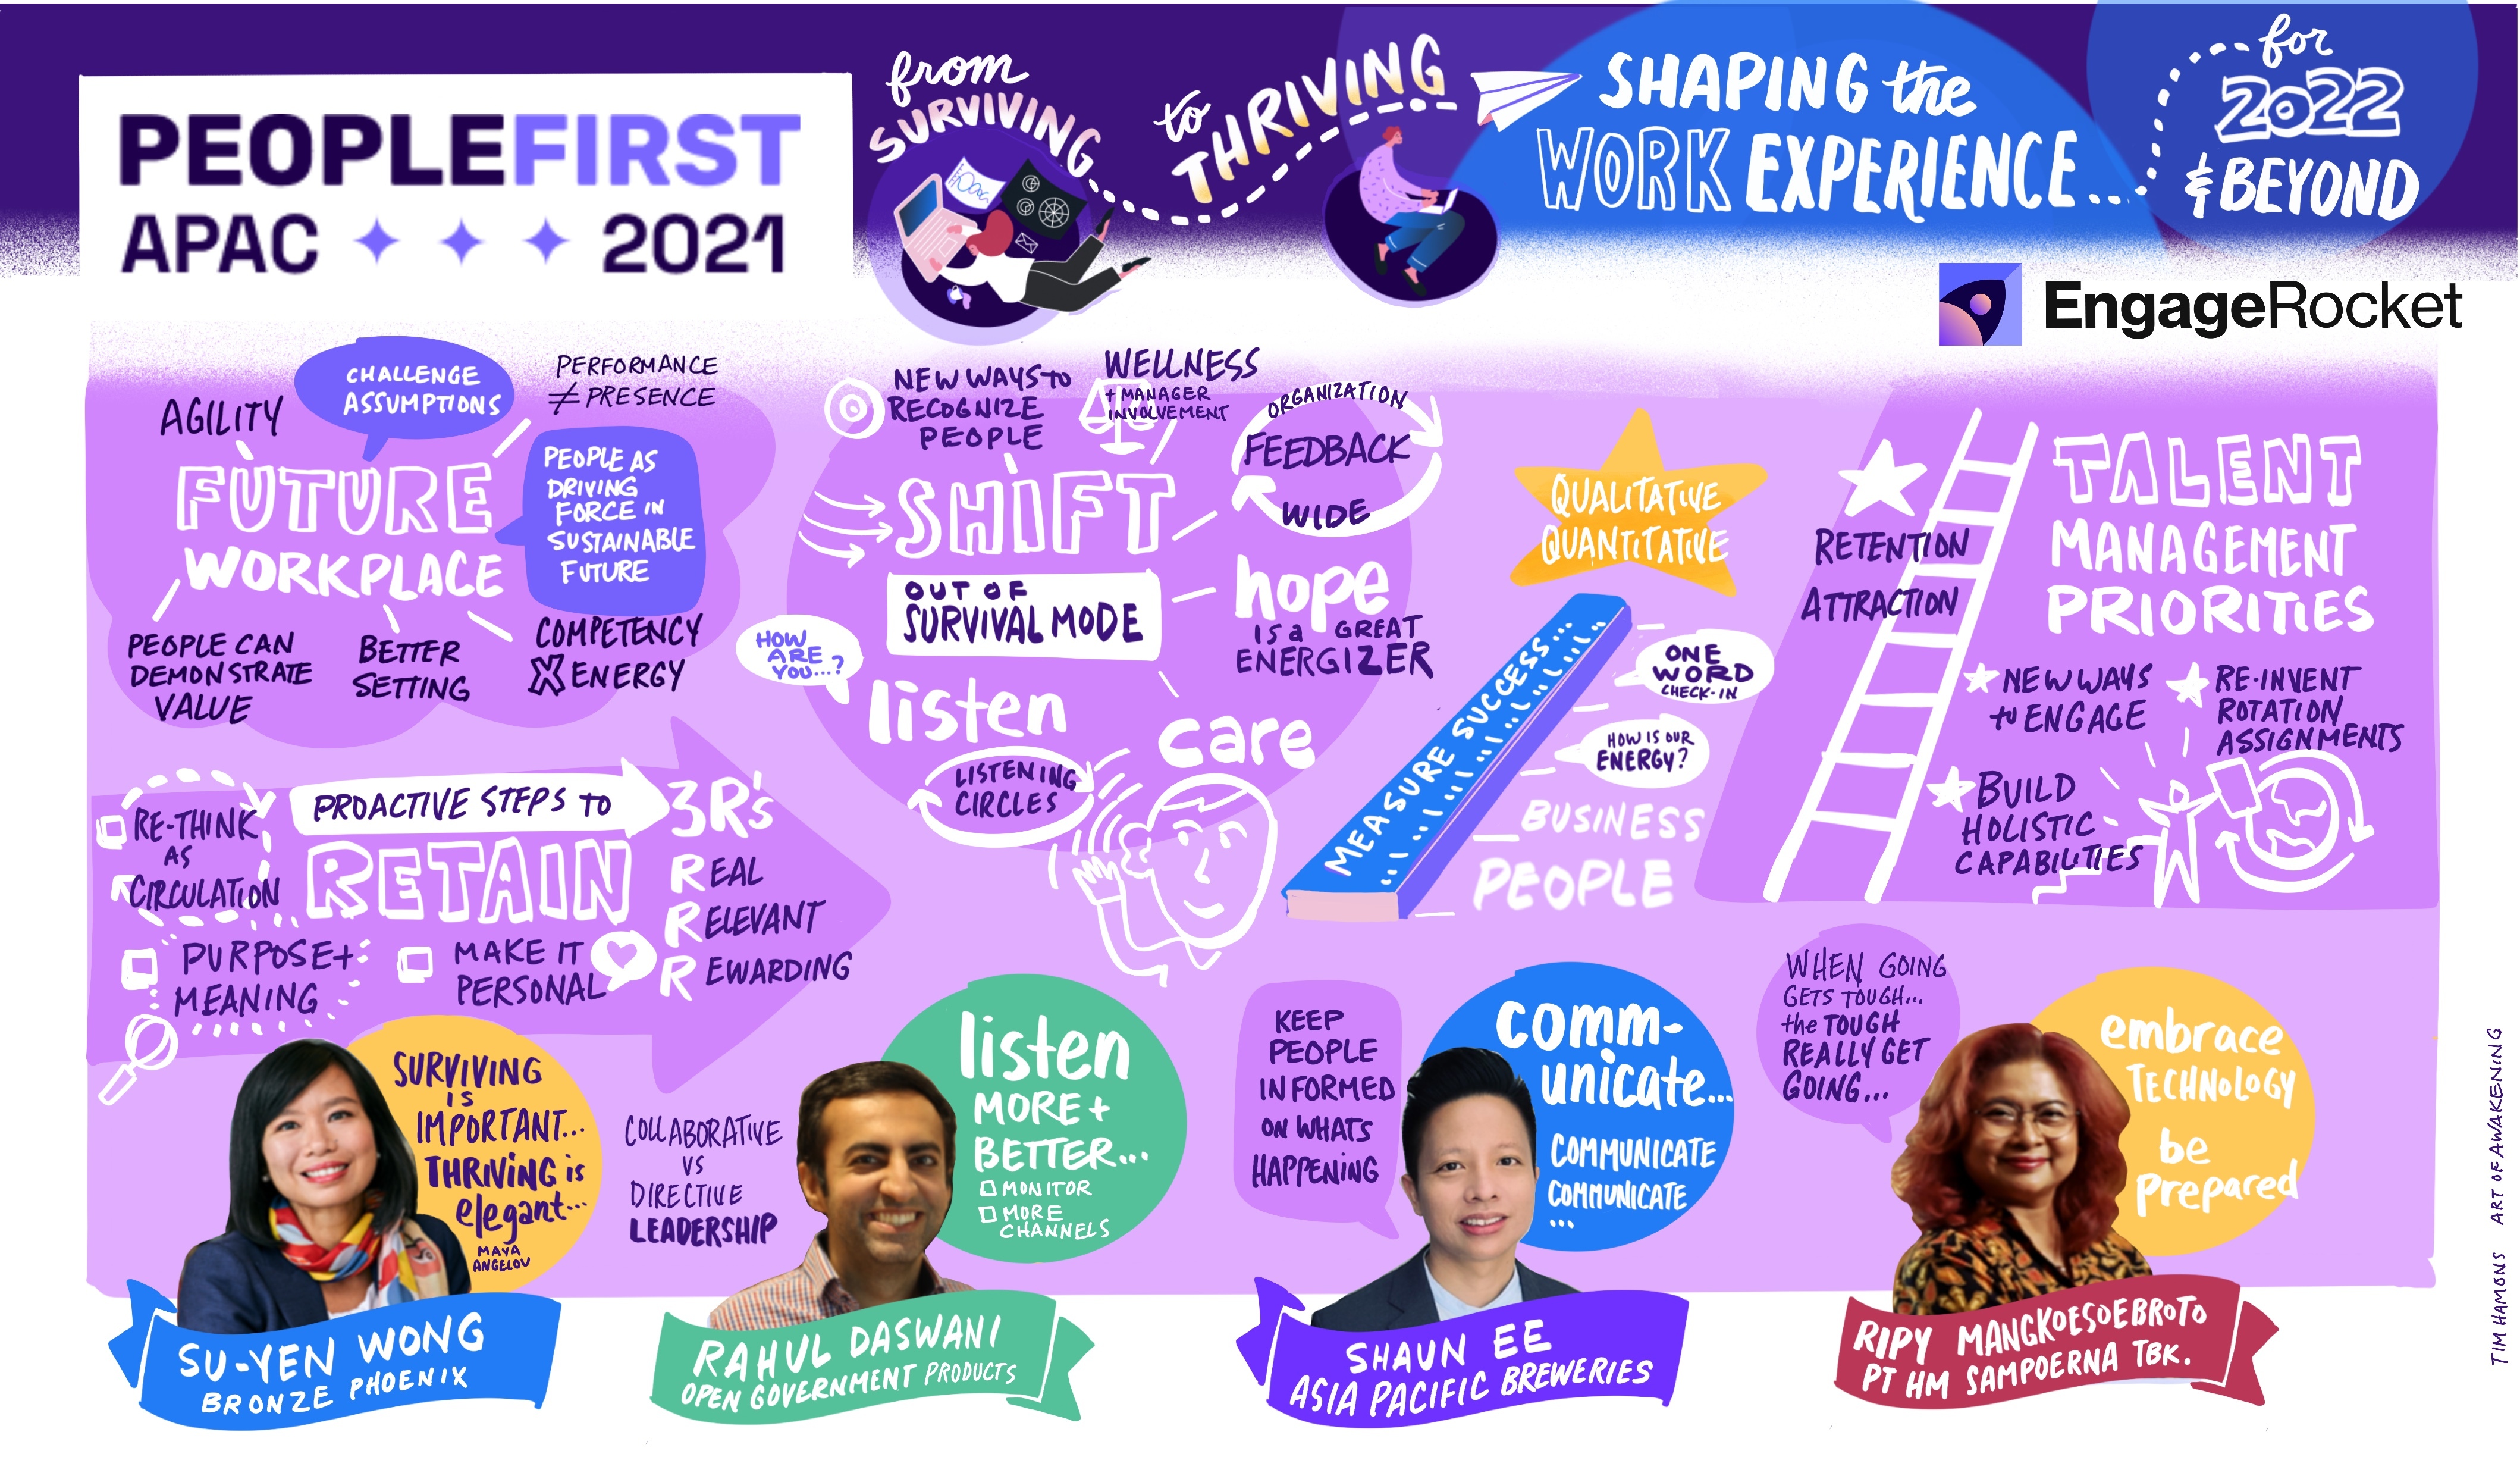 PEOPLEFIRST
APAC 2021
from
SURVIVING
to
THRIVING
SHAPING the
WORK EXPERIENCE...
for
2022
& BEYOND
EngageRocket
AGILITY
CHALLENGE
ASSUMPTIONS
PERFORMANCE
≠ PRESENCE
FUTURE
WORKPLACE
PEOPLE AS
DRIVING
FORCE IN
SUSTAINABLE
FUTURE
PEOPLE CAN
DEMONSTRATE
VALUE
BETTER
SETTING
COMPETENCY
X ENERGY
NEW WAYS to
RECOGNIZE
PEOPLE
WELLNESS
+ MANAGER
INVOLVEMENT
ORGANIZATION
FEEDBACK
WIDE
SHIFT
OUT OF
SURVIVAL MODE
hope
IS a GREAT
ENERGIZER
HOW
ARE
YOU...?
listen
LISTENING
CIRCLES
care
QUALITATIVE
QUANTITATIVE
MEASURE SUCCESS...
ONE
WORD
CHECK-IN
HOW IS OUR
ENERGY?
BUSINESS
PEOPLE
RETENTION
ATTRACTION
TALENT
MANAGEMENT
PRIORITIES
NEW WAYS
to ENGAGE
RE-INVENT
ROTATION
ASSIGNMENTS
BUILD
HOLISTIC
CAPABILITIES
RE-THINK
AS
CIRCULATION
PROACTIVE STEPS TO
RETAIN
PURPOSE +
MEANING
MAKE IT
PERSONAL
3R's
REAL
RELEVANT
REWARDING
SURVIVING
IS
IMPORTANT...
THRIVING is
elegant...
MAYA
ANGELOU
COLLABORATIVE
VS
DIRECTIVE
LEADERSHIP
listen
MORE +
BETTER...
MONITOR
MORE
CHANNELS
KEEP
PEOPLE
INFORMED
ON WHATS
HAPPENING
comm-
unicate...
COMMUNICATE
COMMUNICATE
...
WHEN GOING
GETS TOUGH...
the TOUGH
REALLY GET
GOING...
embrace
TECHNOLOGY
be
prepared
SU-YEN WONG
BRONZE PHOENIX
RAHUL DASWANI
OPEN GOVERNMENT PRODUCTS
SHAUN EE
ASIA PACIFIC BREWERIES
RIPY MANGKOESOEBROTO
PT HM SAMPOERNA TBK.
TIM HAMONS ART OF AWAKENING